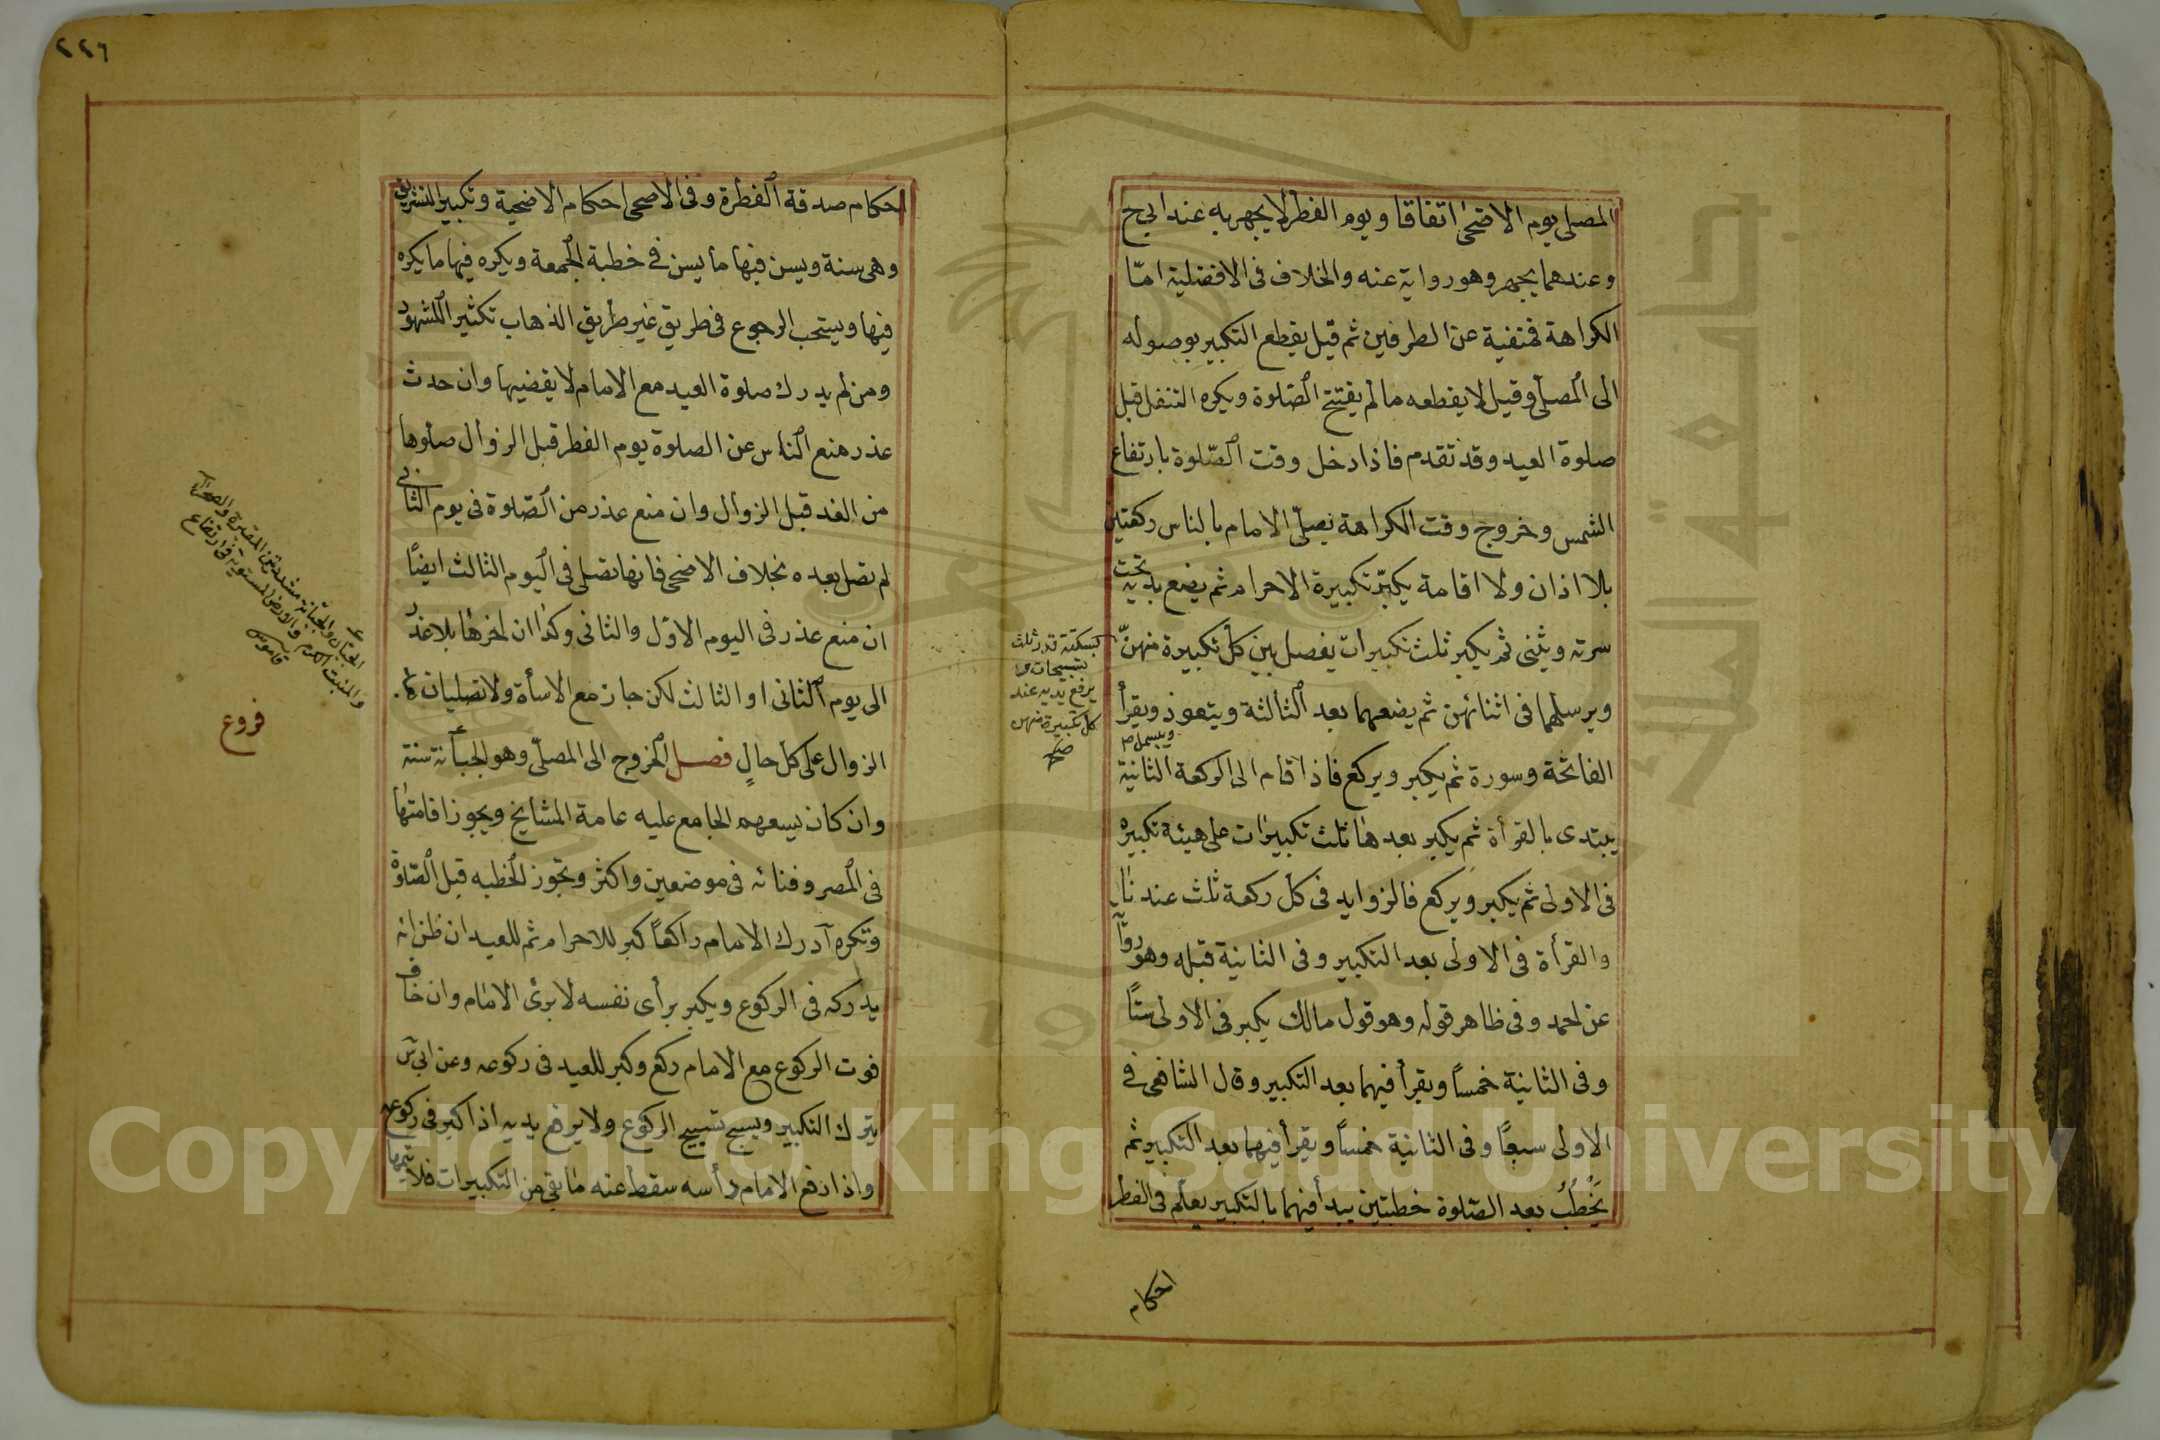 المصلى يوم الاضحى اتفاقا ويوم الفطر لا يجهر به عند ابي ح
وعندهما يجهر وهو رواية عنه والخلاف فى الافضلية امّا
الكراهة فمنفية عن الطرفين ثم قيل يقطع التكبير بوصوله
الى المصلى وقيل لا يقطعه ما لم يفتتح الصّلوة ويكره التنفل قبل
صلوة العيد وقد تقدم فاذا دخل وقت الصّلوة بارتفاع
الشمس وخروج وقت الكراهة يصلّى الامام بالناس ركعتين
بلا اذان ولا اقامة يكبّر تكبيرة الاحرام ثم يضع يديه تحت
سرته ويثنى ثم يكبر ثلث تكبيرات يفصل بين كل تكبيرة منهنّ
بسكتة قدر ثلث
تسبيحات و
يرفع يديه عند
كل تكبيرة منهن
صح
ويرسلهما فى اثنائهن ثم يضعهما بعد الثالثة ويتعوذ ويقرأ
ويبسمل
الفاتحة وسورة ثم يكبر ويركع فاذا قام الى الركعة الثانية
يبتدى بالقرأة ثم يكبر بعدها ثلث تكبيرات على هيئة تكبيره
فى الاولى ثم يكبر ويركع فالزوايد فى كل ركعة ثلث عندنا
والقرأة فى الاولى بعد التكبير وفى الثانية قبله وهو
عن احمد وفى ظاهر قوله وهو قول مالك يكبر فى الاولى ستًا
وفى الثانية خمسًا ويقرأ فيهما بعد التكبير وقال الشافعى فى
الاولى سبعًا وفى الثانية خمسًا ويقرأ فيهما بعد التكبير ثم
يَخْطُبُ بعد الصّلوة خطبتين يبدأ فيهما بالتكبير يعلّم فى الفطر
احكام
٢٢٦
احكام صدقة الفطرة وفى الاضحى احكام الاضحية وتكبير التشريق
وهى سنة ويسن فيها ما يسن فى خطبة الجمعة ويكره فيها ما يكره
فيها ويستحب الرجوع فى طريق غير طريق الذهاب تكثير الشهود
ومن لم يدرك صلوة العيد مع الامام لا يقضيها وان حدث
عذر منع الناس عن الصلوة يوم الفطر قبل الزوال صلوها
من الغد قبل الزوال وان منع عذر من الصّلوة فى يوم الثانى
لم تصل بعده بخلاف الاضحى فانها تصلى فى اليوم الثالث ايضًا
ان منع عذر فى اليوم الاوّل والثانى وكذا ان اخرها بلا عذر
الى يوم الثانى او الثالث لكن جاز مع الاسأة ولا تصليان
الزوال على كل حالٍ فصل الخروج الى المصلّى وهو الجبانة سنة
وان كان يسعهم الجامع عليه عامة المشايخ ويجوز اقامتها
فى المصر وفنائه فى موضعين واكثر وتجوز الخطبه قبل الصّلوة
وتكره ادرك الامام راكعًا كبر للاحرام ثم للعيد ان ظن انه
يدركه فى الركوع ويكبر برأى نفسه لا برئ الامام وان خاف
فوت الركوع مع الامام ركع وكبر للعيد فى ركوعه وعن ابى س
يترك التكبير ويسبح تسبيح الركوع ولا يرفع يديه اذا كبر فى ركوعه
واذا رفع الامام رأسه سقط عنه ما بقى من التكبيرات فلا يتمها
الجبّان والجبّانة مشددتين المقبرة والصحراء
والمنبت الكريم والارض المستوية فى ارتفاع
قاموس
فروع
Copyright © King Saud University